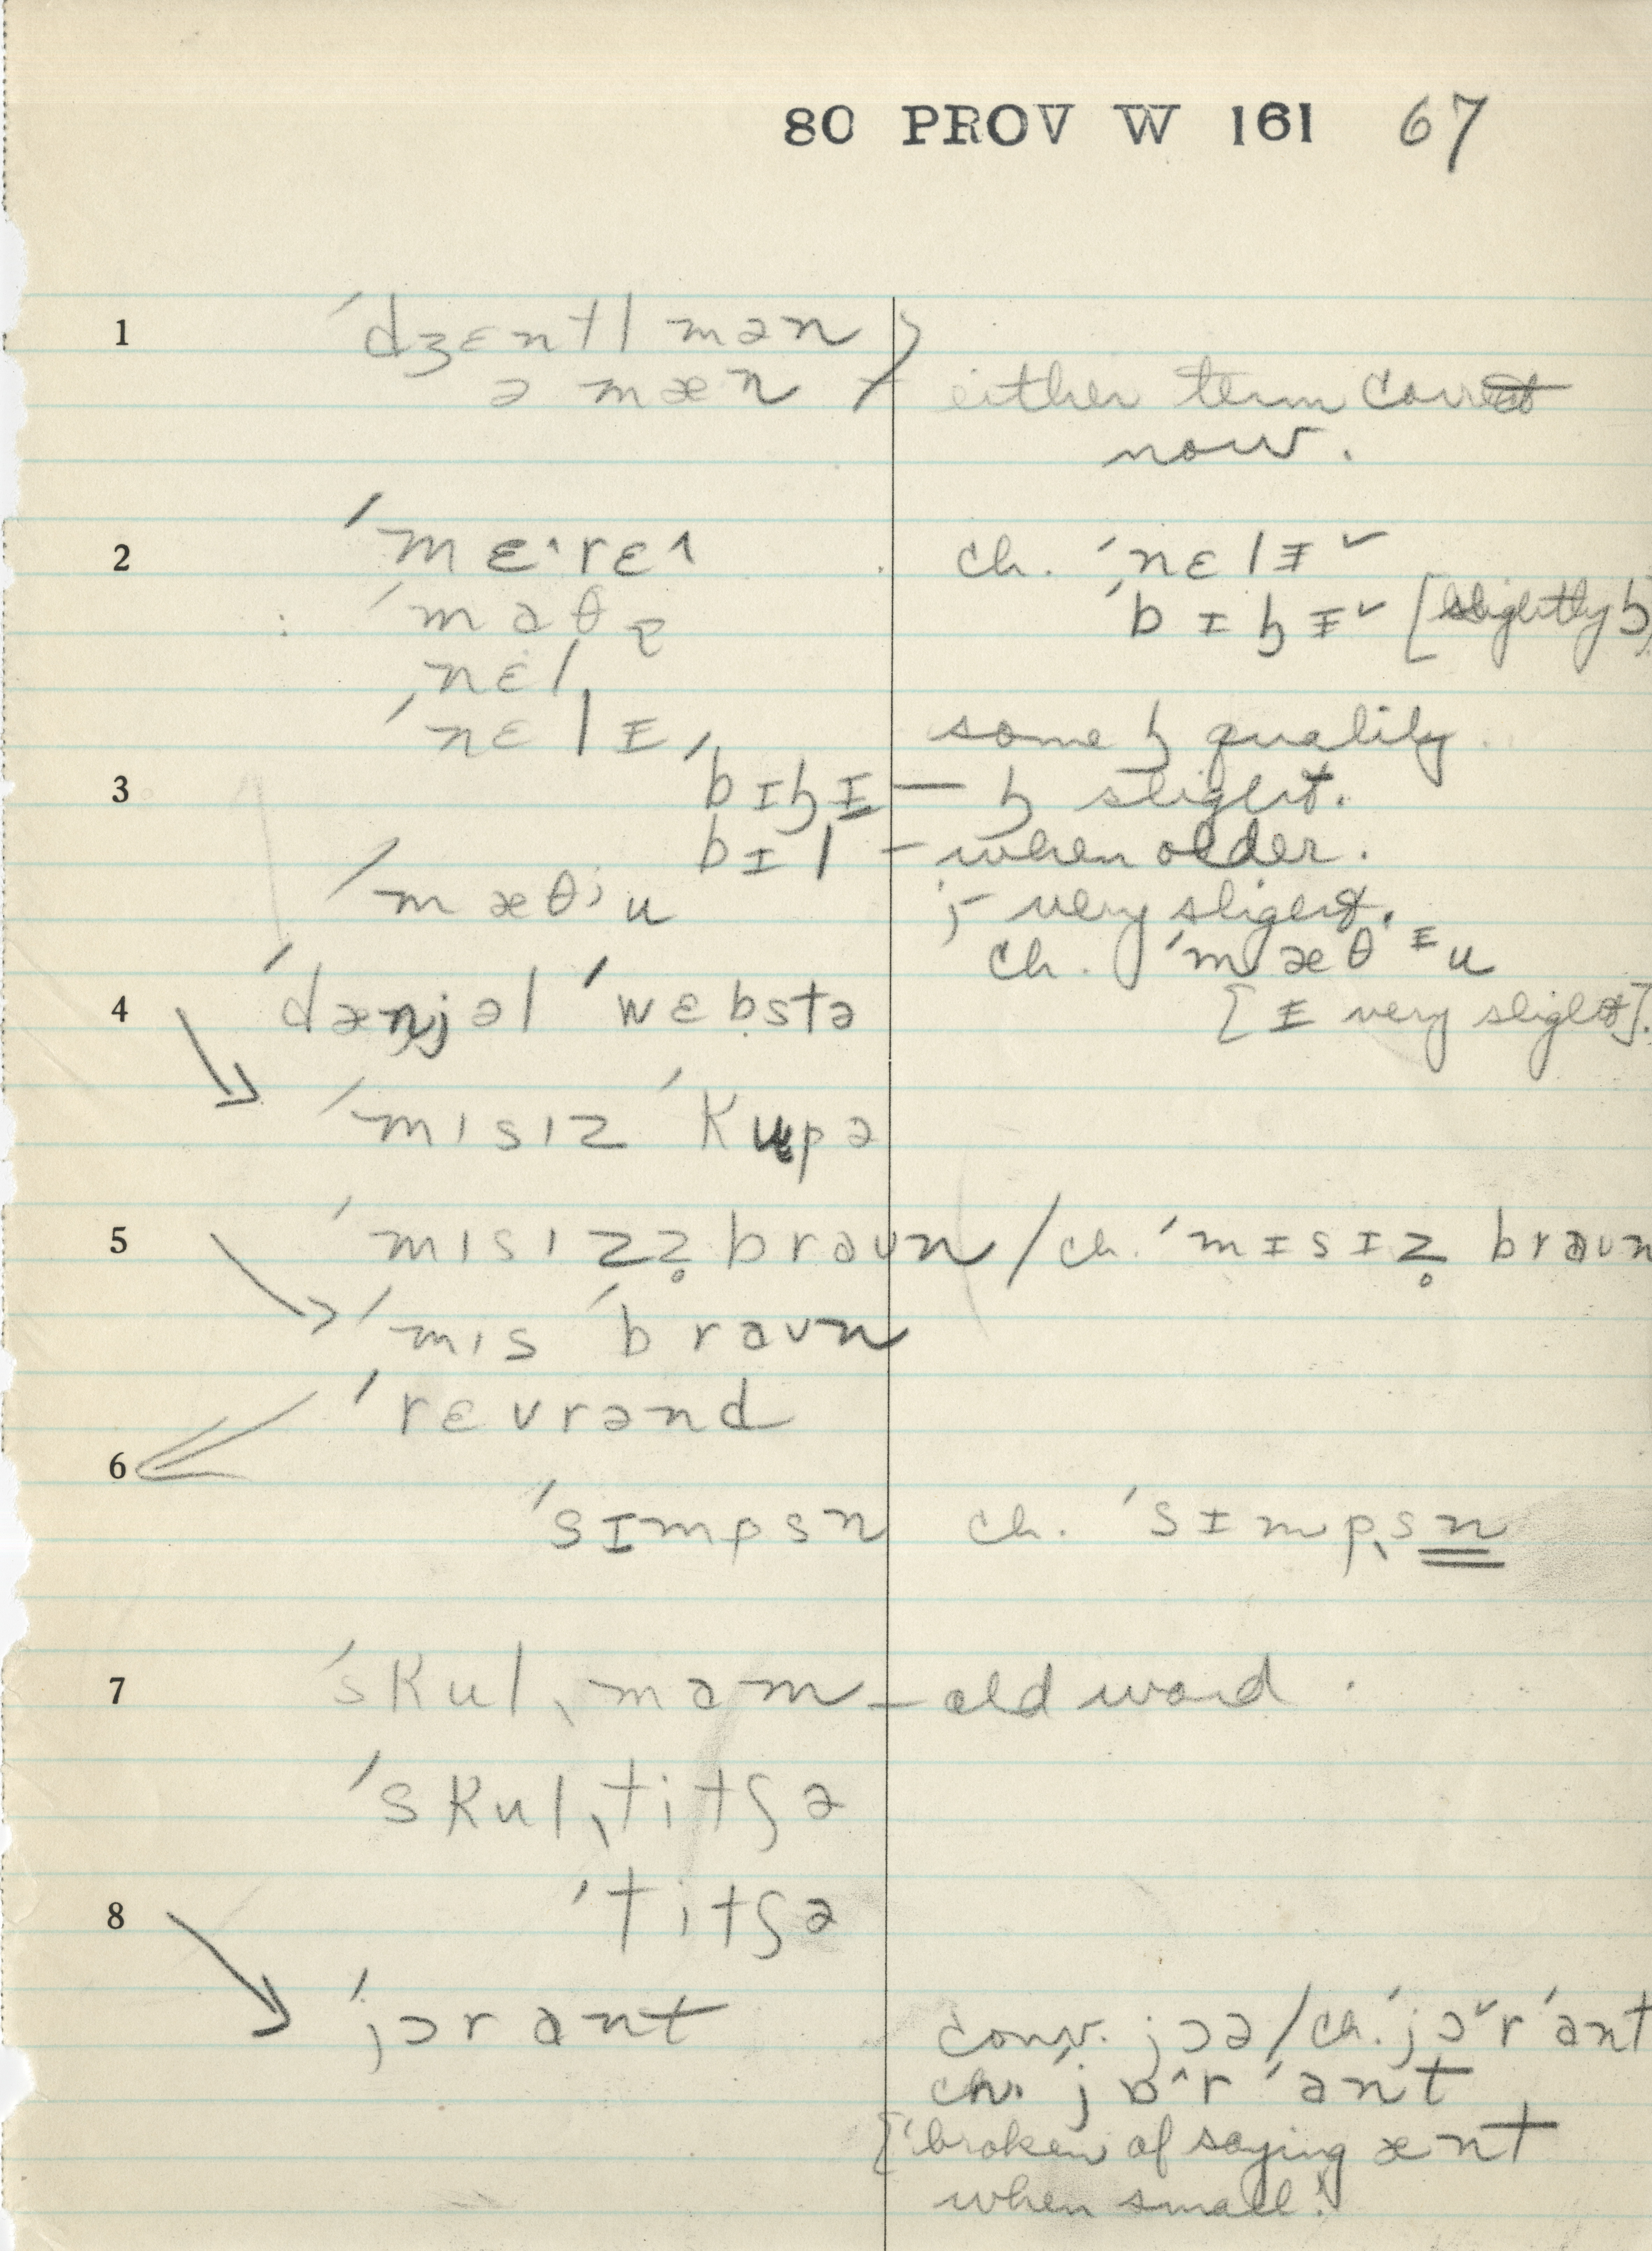 80 PROV W 161 67
1 ˈdʒɛntl mən
ə mæn } either term correct
now.
2 ˈmɛ˖rɛ˄ ch. ˈnɛlɪ˅
ˈmaθə ˈbɪɧɪ˅ [slightly ɧ]
ˈnɛl
ˈnɛlɪ some ɧ quality.
3 ˈbɪɧɪ — ɧ slight.
bɪl – when older.
ˈmæθʲu j – very slight.
ch. ˈmæθᶦu
4 ˈdænjəl ˈwɛbstə [ɪ very slight].
ˈmɪsɪz ˈkupə
5 ˈmɪsɪzz̥ braun / ch. ˈmɪsɪz̥ braun
ˈmɪs ˈbraun
ˈrɛvrənd
6
ˈsɪmpsn ch. ˈsɪmpˌsn
7 ˈskulˌmam – old word.
ˈskulˌtitʃə
8 ˈtitʃə
ˈjɔr ant conv. jɔə / ch. ˈjɔ˅r ˈant
ch. ˈjɒ˄r ˈant
["broken of saying ænt
when small."